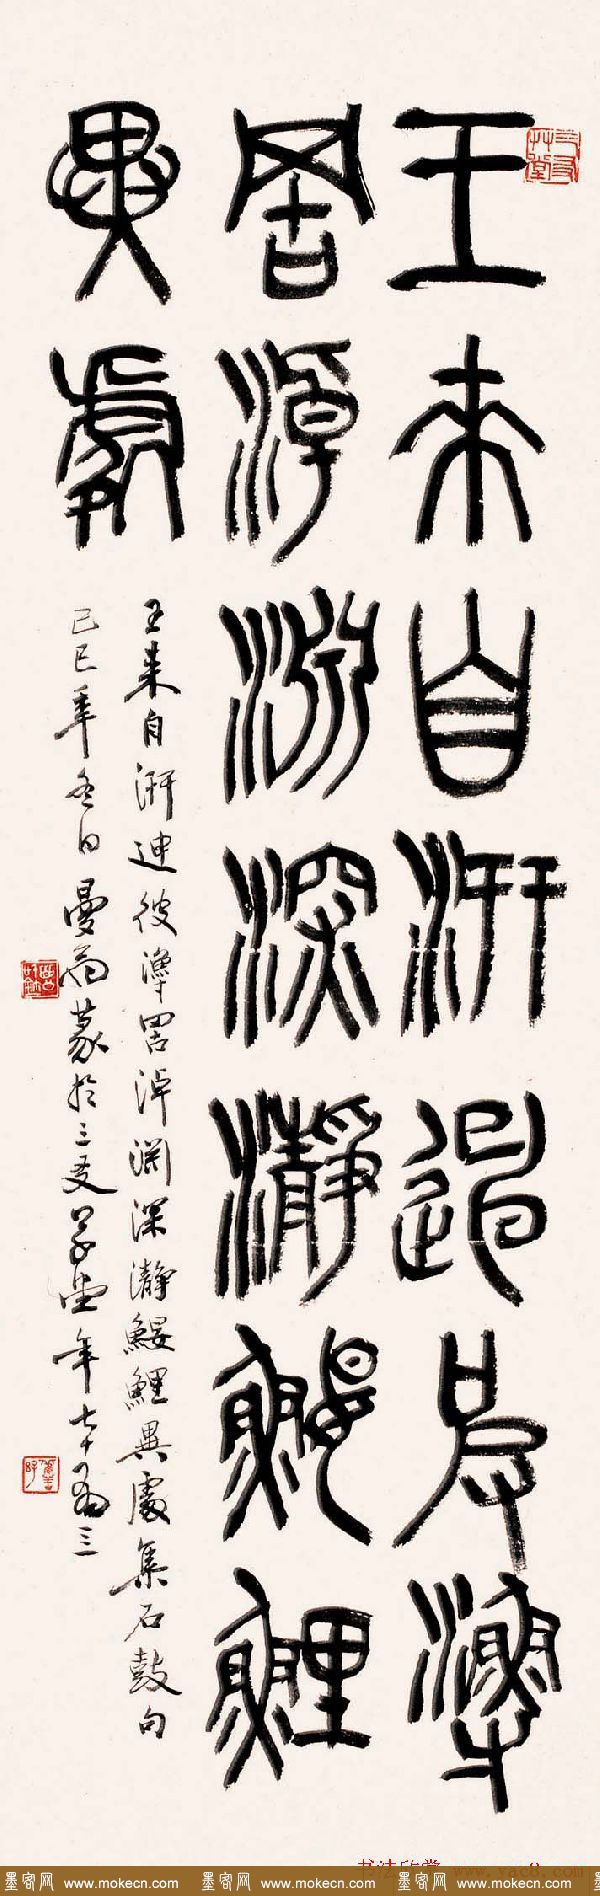 王來自汧迪彼漁
罟淖淵深瀞鰋鯉
異處
王来自汧迪彼漁罟淖渊深瀞鰋鯉異處集石鼓句
己巳年冬日曼而篆於三友草堂年七十有三
书法欣赏 www.yac8.com
墨客网 www.mokecn.com 墨客网 www.mokecn.com 墨客网 www.mokecn.com